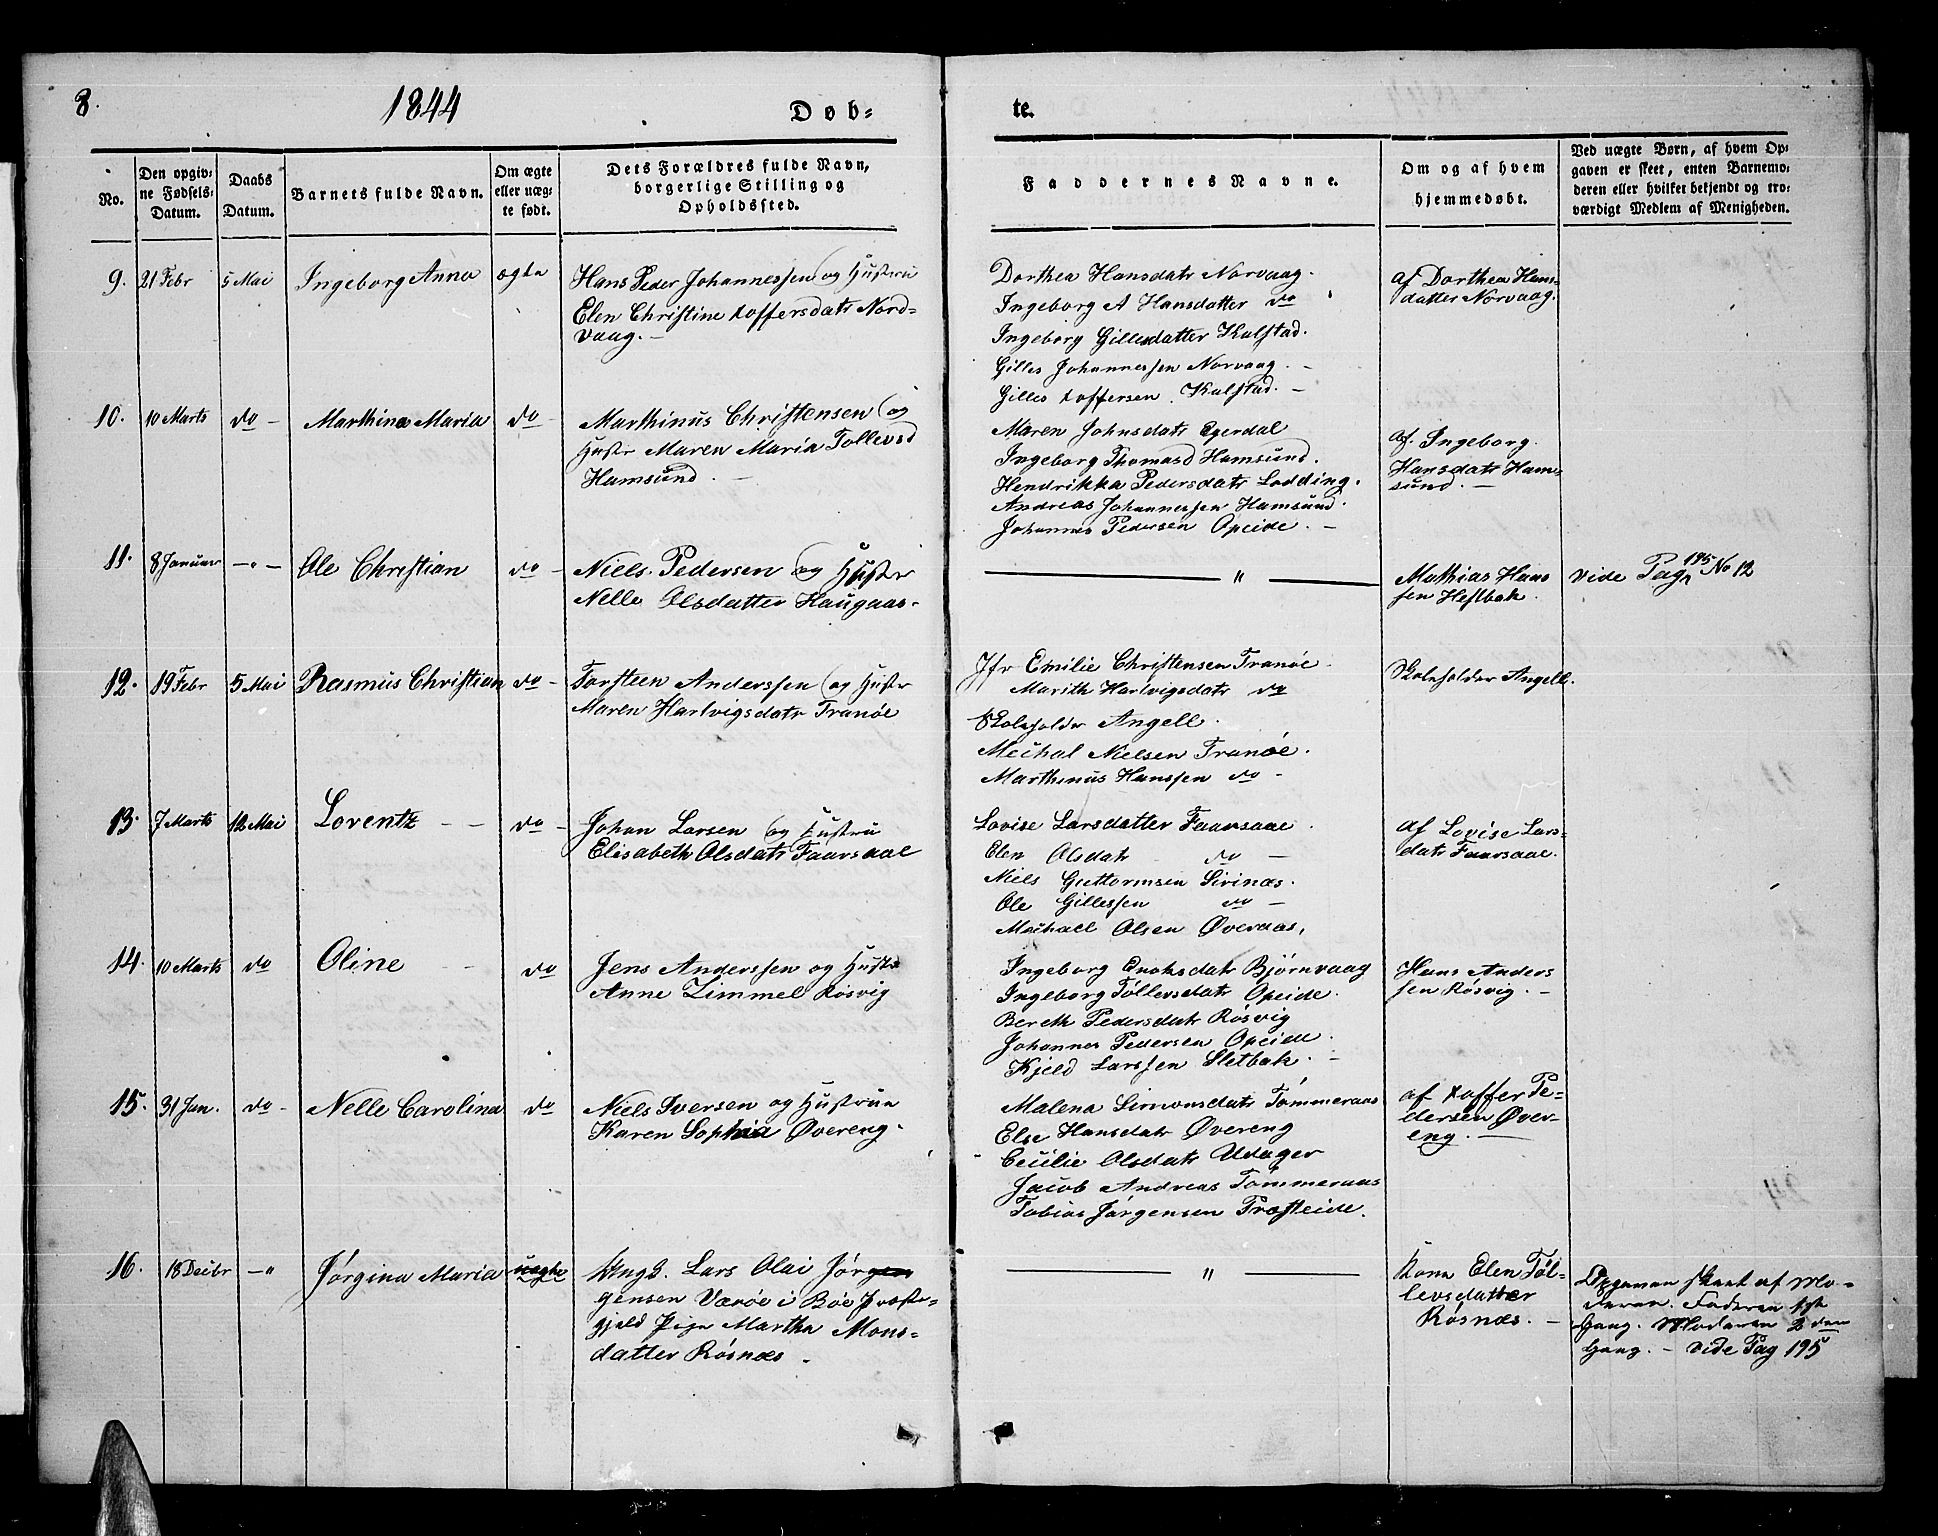 8.
1844
Døb=
te.
No.
Den opgiv=
ne Fødsels=
Datum.
Daabs
Datum.
Barnets fulde Navn.
Om ægte
eller uæg=
te født.
Dets Forældres fulde Navn,
borgerlige Stilling og
Opholdssted.
Faddernes Navne.
Om og af hvem
hjemmedøbt.
Ved uægte Børn, af hvem Op=
gaven er skeet, enten Barnemo=
deren eller hvilket bekjendt og tro=
værdigt Medlem af Menigheden.
9. 21 Febr 5 Mai Ingeborg Anna ægte
Hans Peder Johannessen og Hustru
Elen Christine toffersdatr Nord=
vaag. –
Dorthea Hansdatr Norvaag.
Ingeborg A Hansdatter do
Ingeborg Gillesdatter Kalstad.
Gilles Johannessen Norvaag. –
Gilles toffersen Kalstad. –
af Dorthea Hans=
datter Norvaag.
10. 10 Marts do – Marthine Maria do –
Marthinus Christensen og
Hustr Maren Maria Tollevsd
Hamsund. –
Maren Johnsdatr Egerdal
Ingeborg Thomasd Hamsund.
Hendrikka Pedersdatr Lodding.
Andreas Johannessen Hamsund.
Johannes Pedersen Opeide. –
af. Ingeborg.
Hansdatr Ham=
sund. –
11. 8 Januar –"– Ole Christian do –
Niels Pedersen og Hustr
Nelle Olsdatter Haugaas.
— " —
Mathias Hans
sen Hestbak.
vide Pag 195 No 12
12. 19 Febr 5 Mai Rasmus Christian do –
Torsteen Anderssen og Hustr
Maren Hartvigsdatr Tranöe
Jfr Emilie Christensen Tranöe.
Marith Hartvigsdatr do
Skoleholder Angell.
Michal Nielsen Tranöe.
Marthinus Hanssen do –
Skoleholder Angell.
13. 7 Marts 12 Mai Lorentz – – do –
Johan Larsen og Hustru
Elisabeth Olsdatr Faarsaae
Lovise Larsdatter Faarsaae.
Elen Olsdatr do –
Niels Guttormsen Sirinæs.
Ole Gillessen do –
Michael Olsen Øveraas,
af Lovise Lars=
datr Faarsaae.
14. 10 Marts do Oline – do
Jens Anderssen og Hustr
Anne Zimmel Rösvig
Ingeborg Enoksdatr Bjørnvaag
Ingeborg Töllevsdatr Opeide.
Bereth Pedersdatr Rösvig
Johannes Pedersen Opeide.
Kjeld Larssen Sletbak. –
Hans Anders
sen Rösvig. –
15. 31 Jan. do – Nelle Carolina do
Niels Iversen og Hustrue
Karen Sophia Øvereng.
Malena Simonsdatr Tömmeraas
Else Hansdatr Øvereng
Cecilie Olsdatr Udager
Jacob Andreas Tömmeraas
Tobias Jørgensen Præsteide.
af toffer Pe=
dersen Øver=
eng. –
16. 18 Decbr –" Jørgina Maria uægte
Ungk. Lars Olai Jør
gensen Væröe i Böe Præste=
gjeld Pige Martha Mons=
datter Rösnæs.
— " —
Kone Elen Töl=
levsdatter
Rösnæs. –
Opgaven skeet af Mo=
deren. Faderen 1ste
Gang. Moderen 2 den
Gang. – vide Pag 195